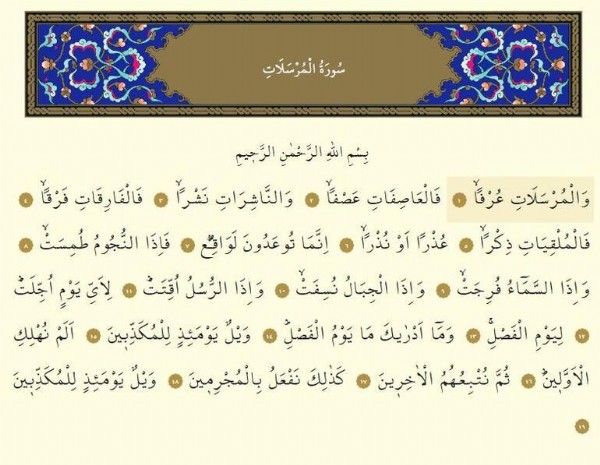 سُورَةُ الْمُرْسَلَاتِ
بِسْمِ اللهِ الرَّحْمٰنِ الرَّح۪يمِ
وَالْمُرْسَلَاتِ عُرْفًاۙ ١ فَالْعَاصِفَاتِ عَصْفًاۙ ٢ وَالنَّاشِرَاتِ نَشْرًاۙ ٣ فَالْفَارِقَاتِ فَرْقًاۙ ٤
فَالْمُلْقِيَاتِ ذِكْرًاۙ ٥ عُذْرًا اَوْ نُذْرًاۙ ٦ اِنَّمَا تُوعَدُونَ لَوَاقِعٌۜ ٧ فَاِذَا النُّجُومُ طُمِسَتْۙ ٨
وَاِذَا السَّمَٓاءُ فُرِجَتْۙ ٩ وَاِذَا الْجِبَالُ نُسِفَتْۙ ١٠ وَاِذَا الرُّسُلُ اُقِّتَتْۜ ١١ لِاَيِّ يَوْمٍ اُجِّلَتْۜ
١٢ لِيَوْمِ الْفَصْلِۚ ١٣ وَمَٓا اَدْرٰيكَ مَا يَوْمُ الْفَصْلِۜ ١٤ وَيْلٌ يَوْمَئِذٍ لِلْمُكَذِّب۪ينَ ١٥ اَلَمْ نُهْلِكِ
الْاَوَّل۪ينَۜ ١٦ ثُمَّ نُتْبِعُهُمُ الْاٰخِر۪ينَ ١٧ كَذٰلِكَ نَفْعَلُ بِالْمُجْرِم۪ينَ ١٨ وَيْلٌ يَوْمَئِذٍ لِلْمُكَذِّب۪ينَ
١٩